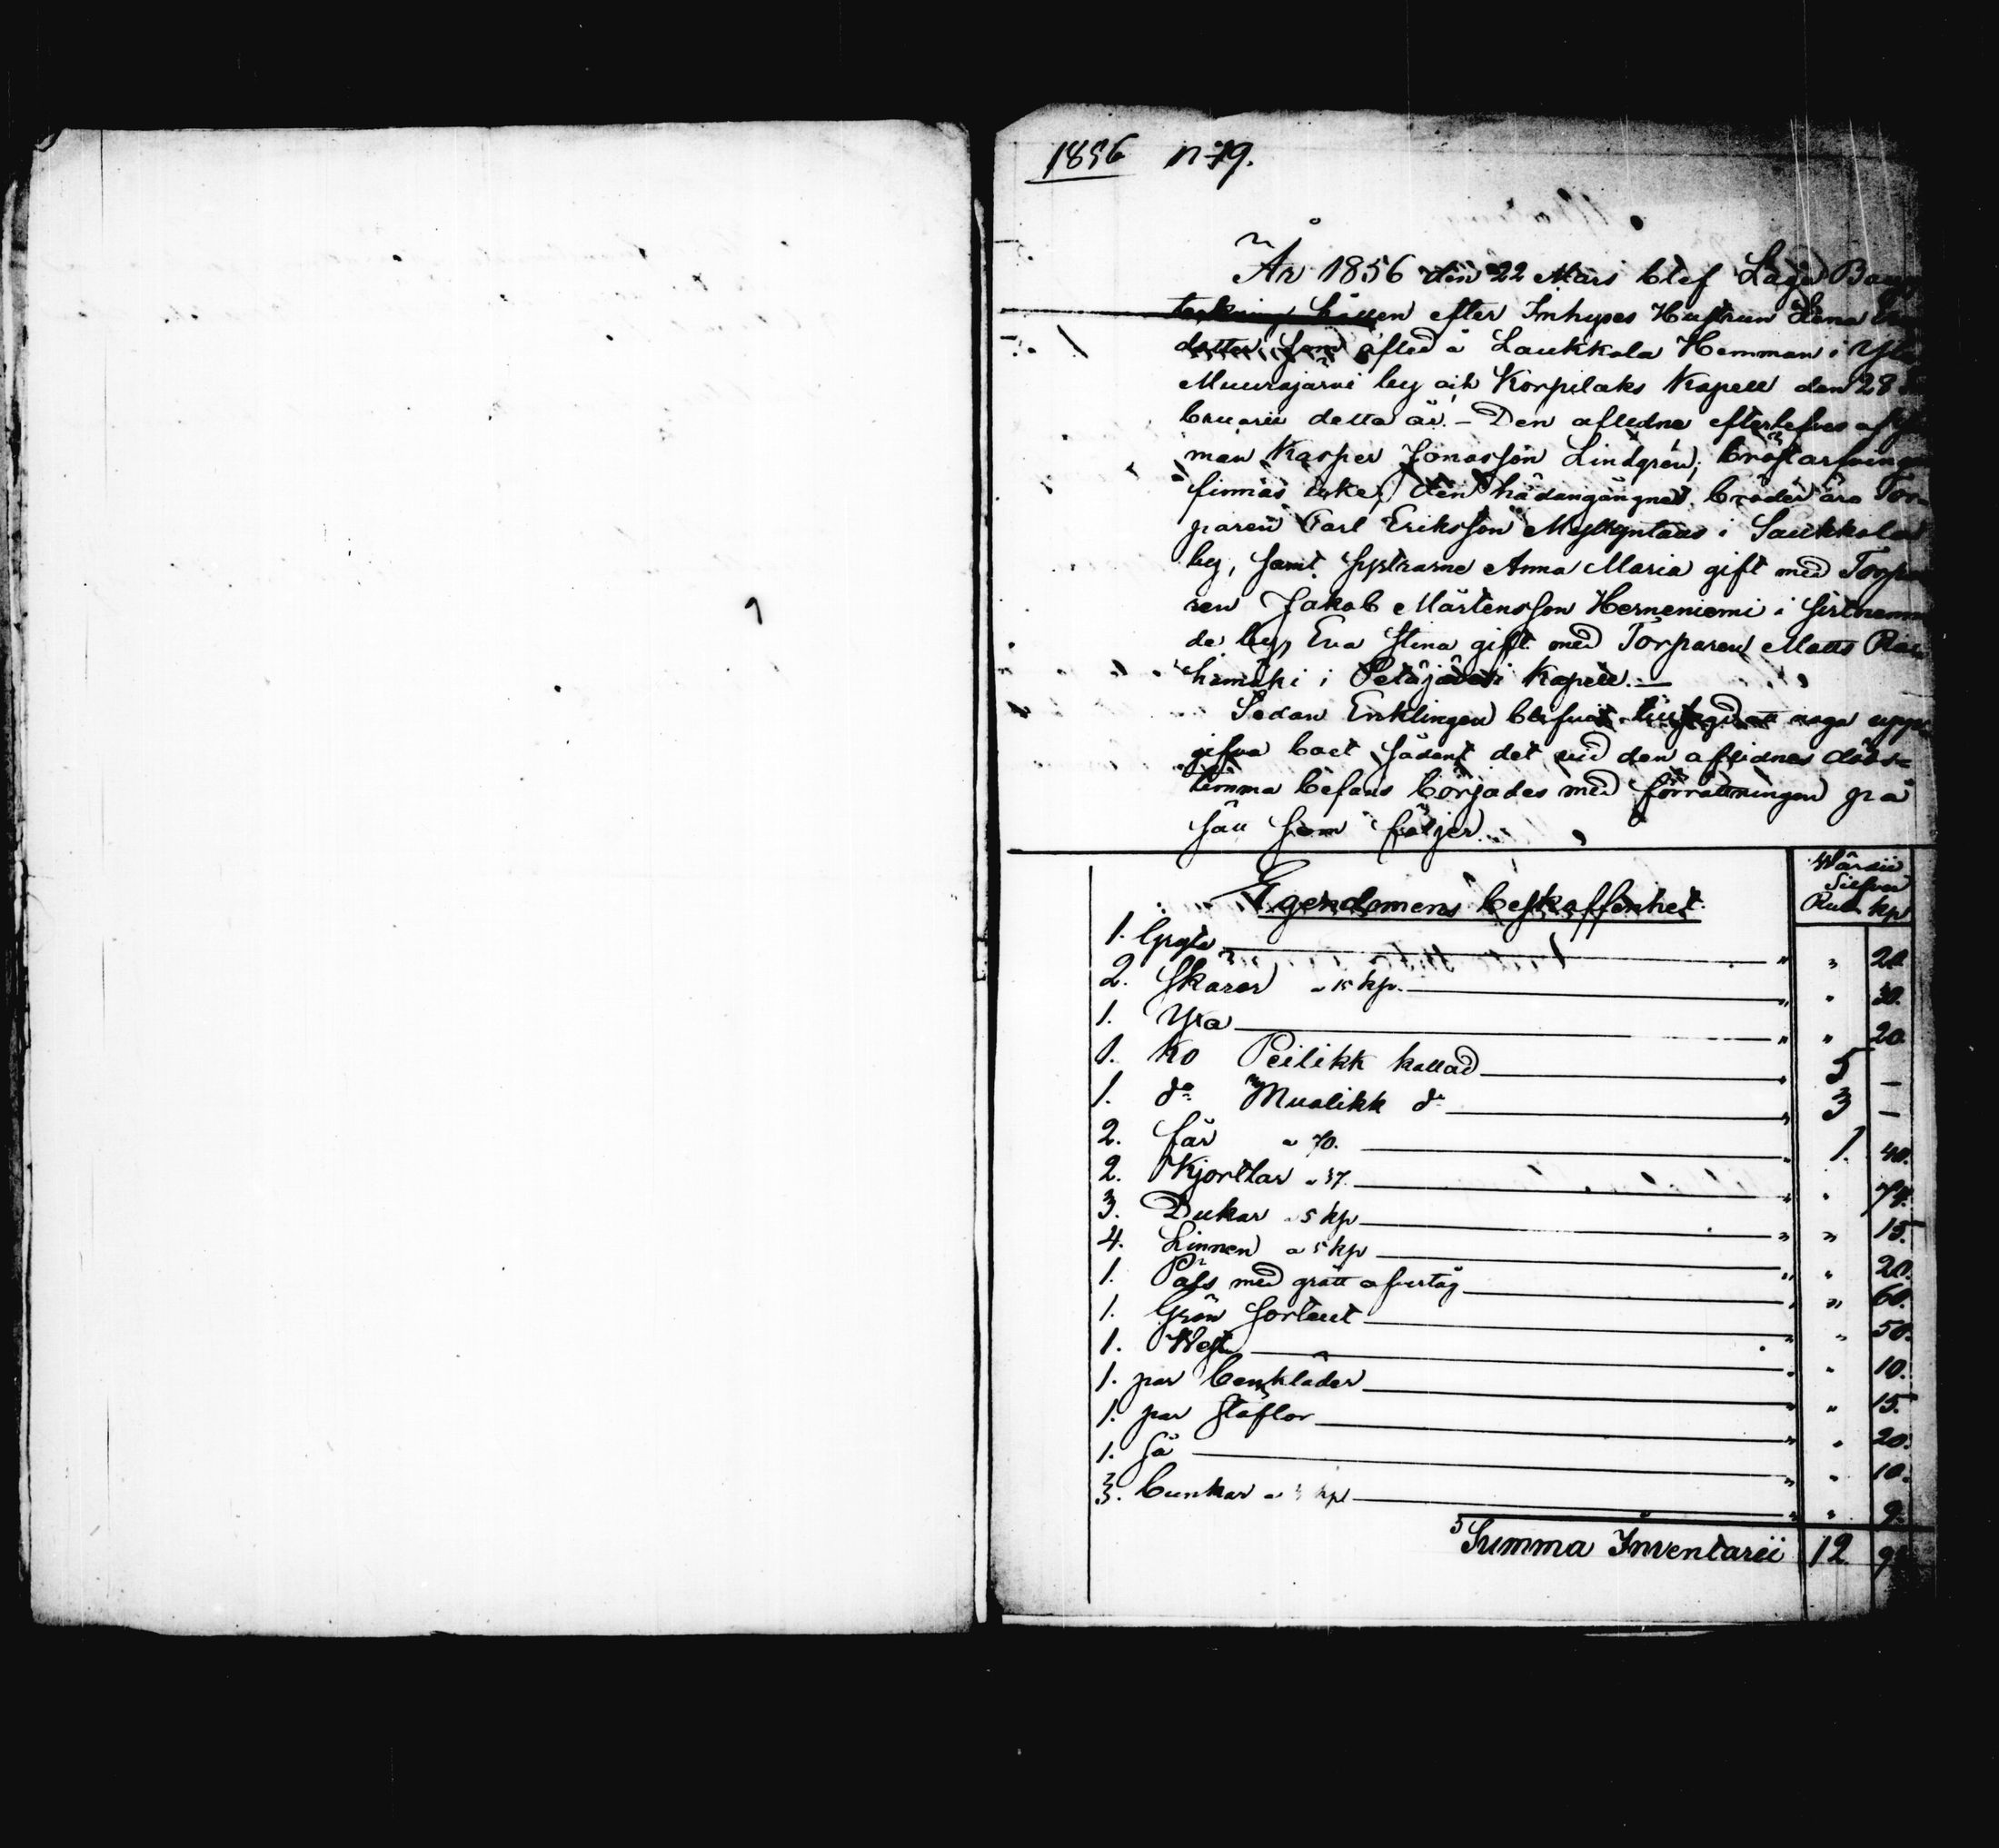 1856 n 79.
År 1856 den 22 Mars blef Laga Bou
tekning hållen efter Inhyses Hustrun Lena
dotter, som afled å Laukkala Hemman i Yle
Muurajärvi by och Korpilaks Kapell den 28
bruarii detta år. – Den aflidna efterlefves af
man Kasper Jonasson Lindgrén; bröstarfvingar
finnas icke, den hädangångnas bröder äro Tor-
paren Carl Eriksson Myllyntaus i Saukkola
by, samt systrarne Anna Maria gift med Torpa
ren Jakob Mårtensson Herneniemi i sistnemn
de by, Eva Stina gift med Torparen Matts
hämäki i Petäjävesi Kapell. —
Sedan Enklingen blifvit tillsagd att noga upp-
gifva boet sådant det vid den aflidnes döds-
timma befans börjades med förrättningen på
sätt som följer.
Egendomens beskaffenhet. Wärde Silfver Rub. kp
1. Gryta " " 20.
2. Skäror a 15 kp. " " 30.
1. Yxa " " 20.
1. Ko Peilikk kallad " 5 –
1. do Mualikk do " 3 –
2. får a 70. " 1. 40.
2. Kjortlar a 37. " " 74.
3. Dukar a 5 kp " " 15.
4. Linnen a 5 kp " " 20.
1. Päls med grått öfvertåg " " 60.
1. Grön Sortout " " 50.
1. West " " 10.
1. par benkläder " " 15.
1. par stöflor " " 20.
1. Så " " 10.
3. bunkar a 3 kp " " 9.
Summa Inventarii 12